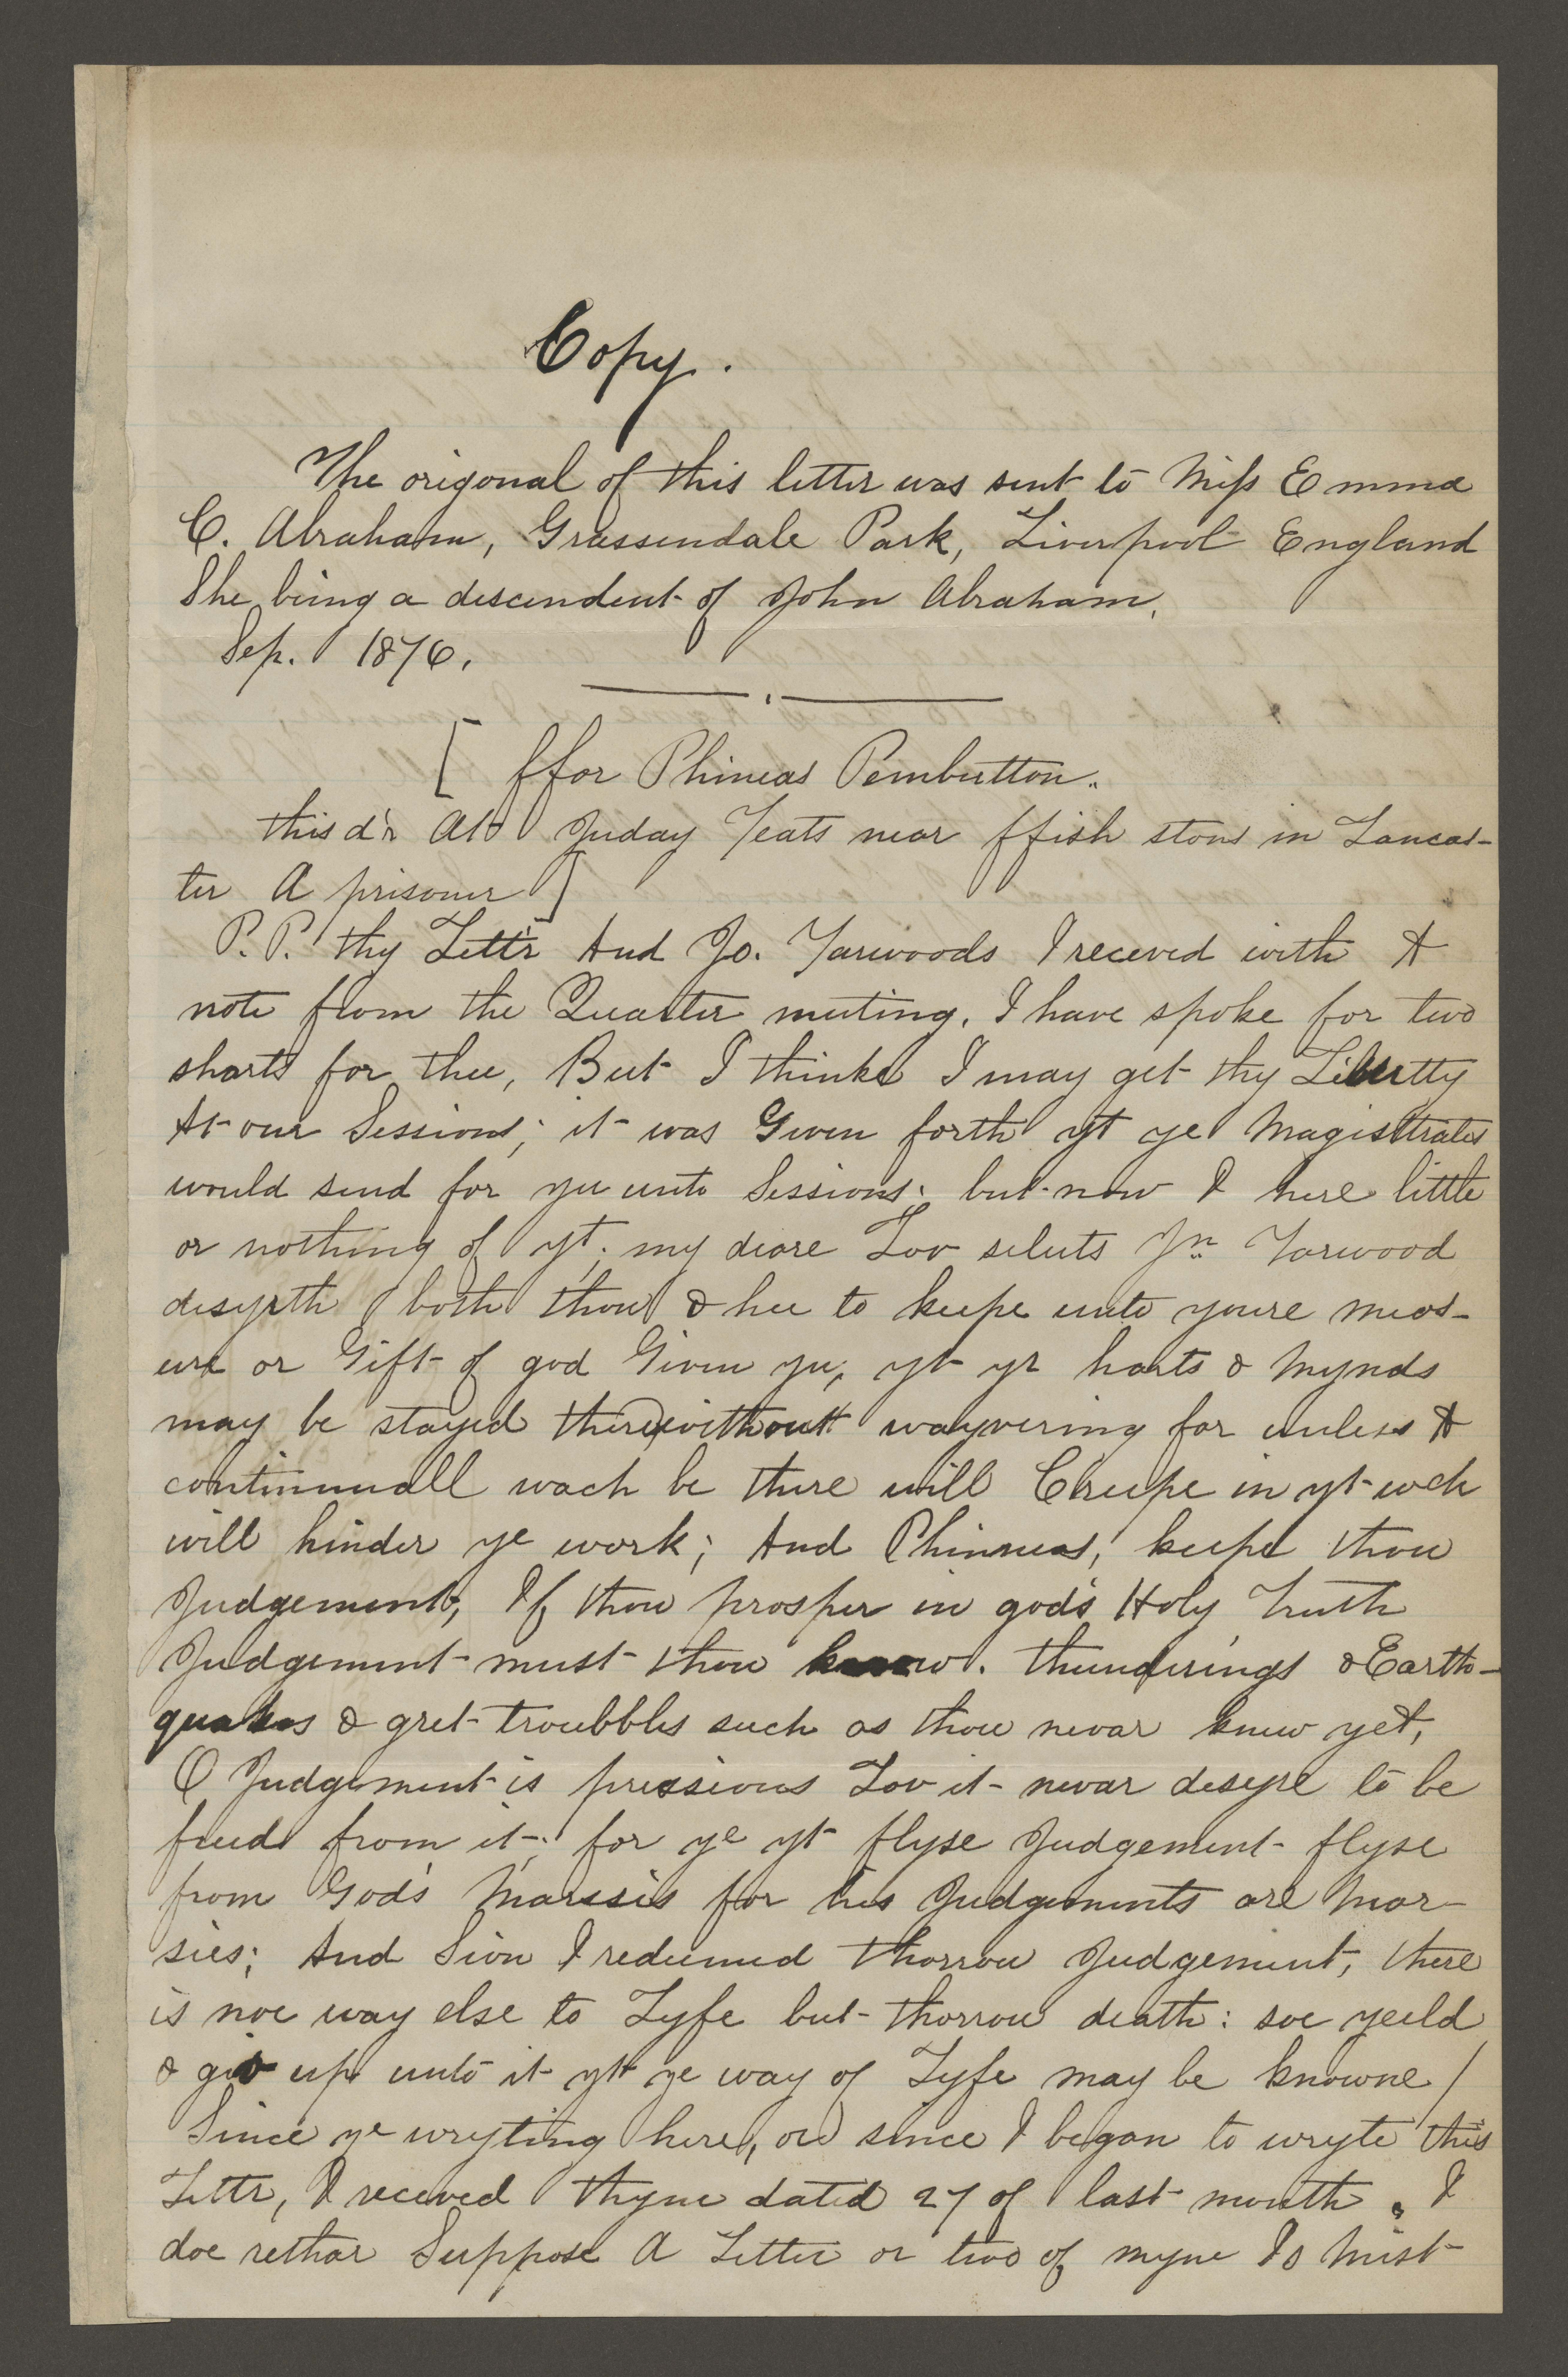 Copy.
The origonal of this letter was sent to Miss Emma
C. Abraham, Grassendale Park, Liverpool England
She being a descendent of John Abraham.
Sep. 1876.
[ ffor Phineas Pembutton.
this d'r Att Juday Yeats near ffish stons in Lancas-
ter A prisoner ]
P. P. thy Lett'r And Jo. Yarwoods I receved with A
note from the Quarter meeting. I have spoke for two
sharts for thee, But I thinke I may get thy Libertty
At our Sessions; it was Given forth yt ye Magisttrates
would send for yu unto Sessions: but now I here little
or nothing of yt; my deare Lov seluts Jn Yarwood
desyrth both thou & hee to keepe unto youre meas-
ure or Gift of god Given yu, yt yr harts & Mynds
may be stayed there without wayvering for unless A
continnuall wach be there will Creepe in yt wch
will hinder ye work; And Phinneas, keepe thou
Judgement, If thou prosper in god's Holy Truth
Judgement must thou know. thunderings & Earth-
quakes & gret troubbles such as thou nevar knew yet,
O Judgement is pressious Lov it nevar desyre to be
freed from it; for ye yt flyse Judgement flyse
from God's Marssis for his Judgements are Mar-
sies; And Sion I redeemed thorrow Judgement, there
is noe way else to Lyfe but thorrow death: soe yeeld
& giv up unto it yt ye way of Lyfe may be knowne /
Since ye wryting here, or since I began to wryte this
Lettr, I receved thyne dated 27 of last month. I
doe rethar Suppose A Letter or two of myne Is Mist